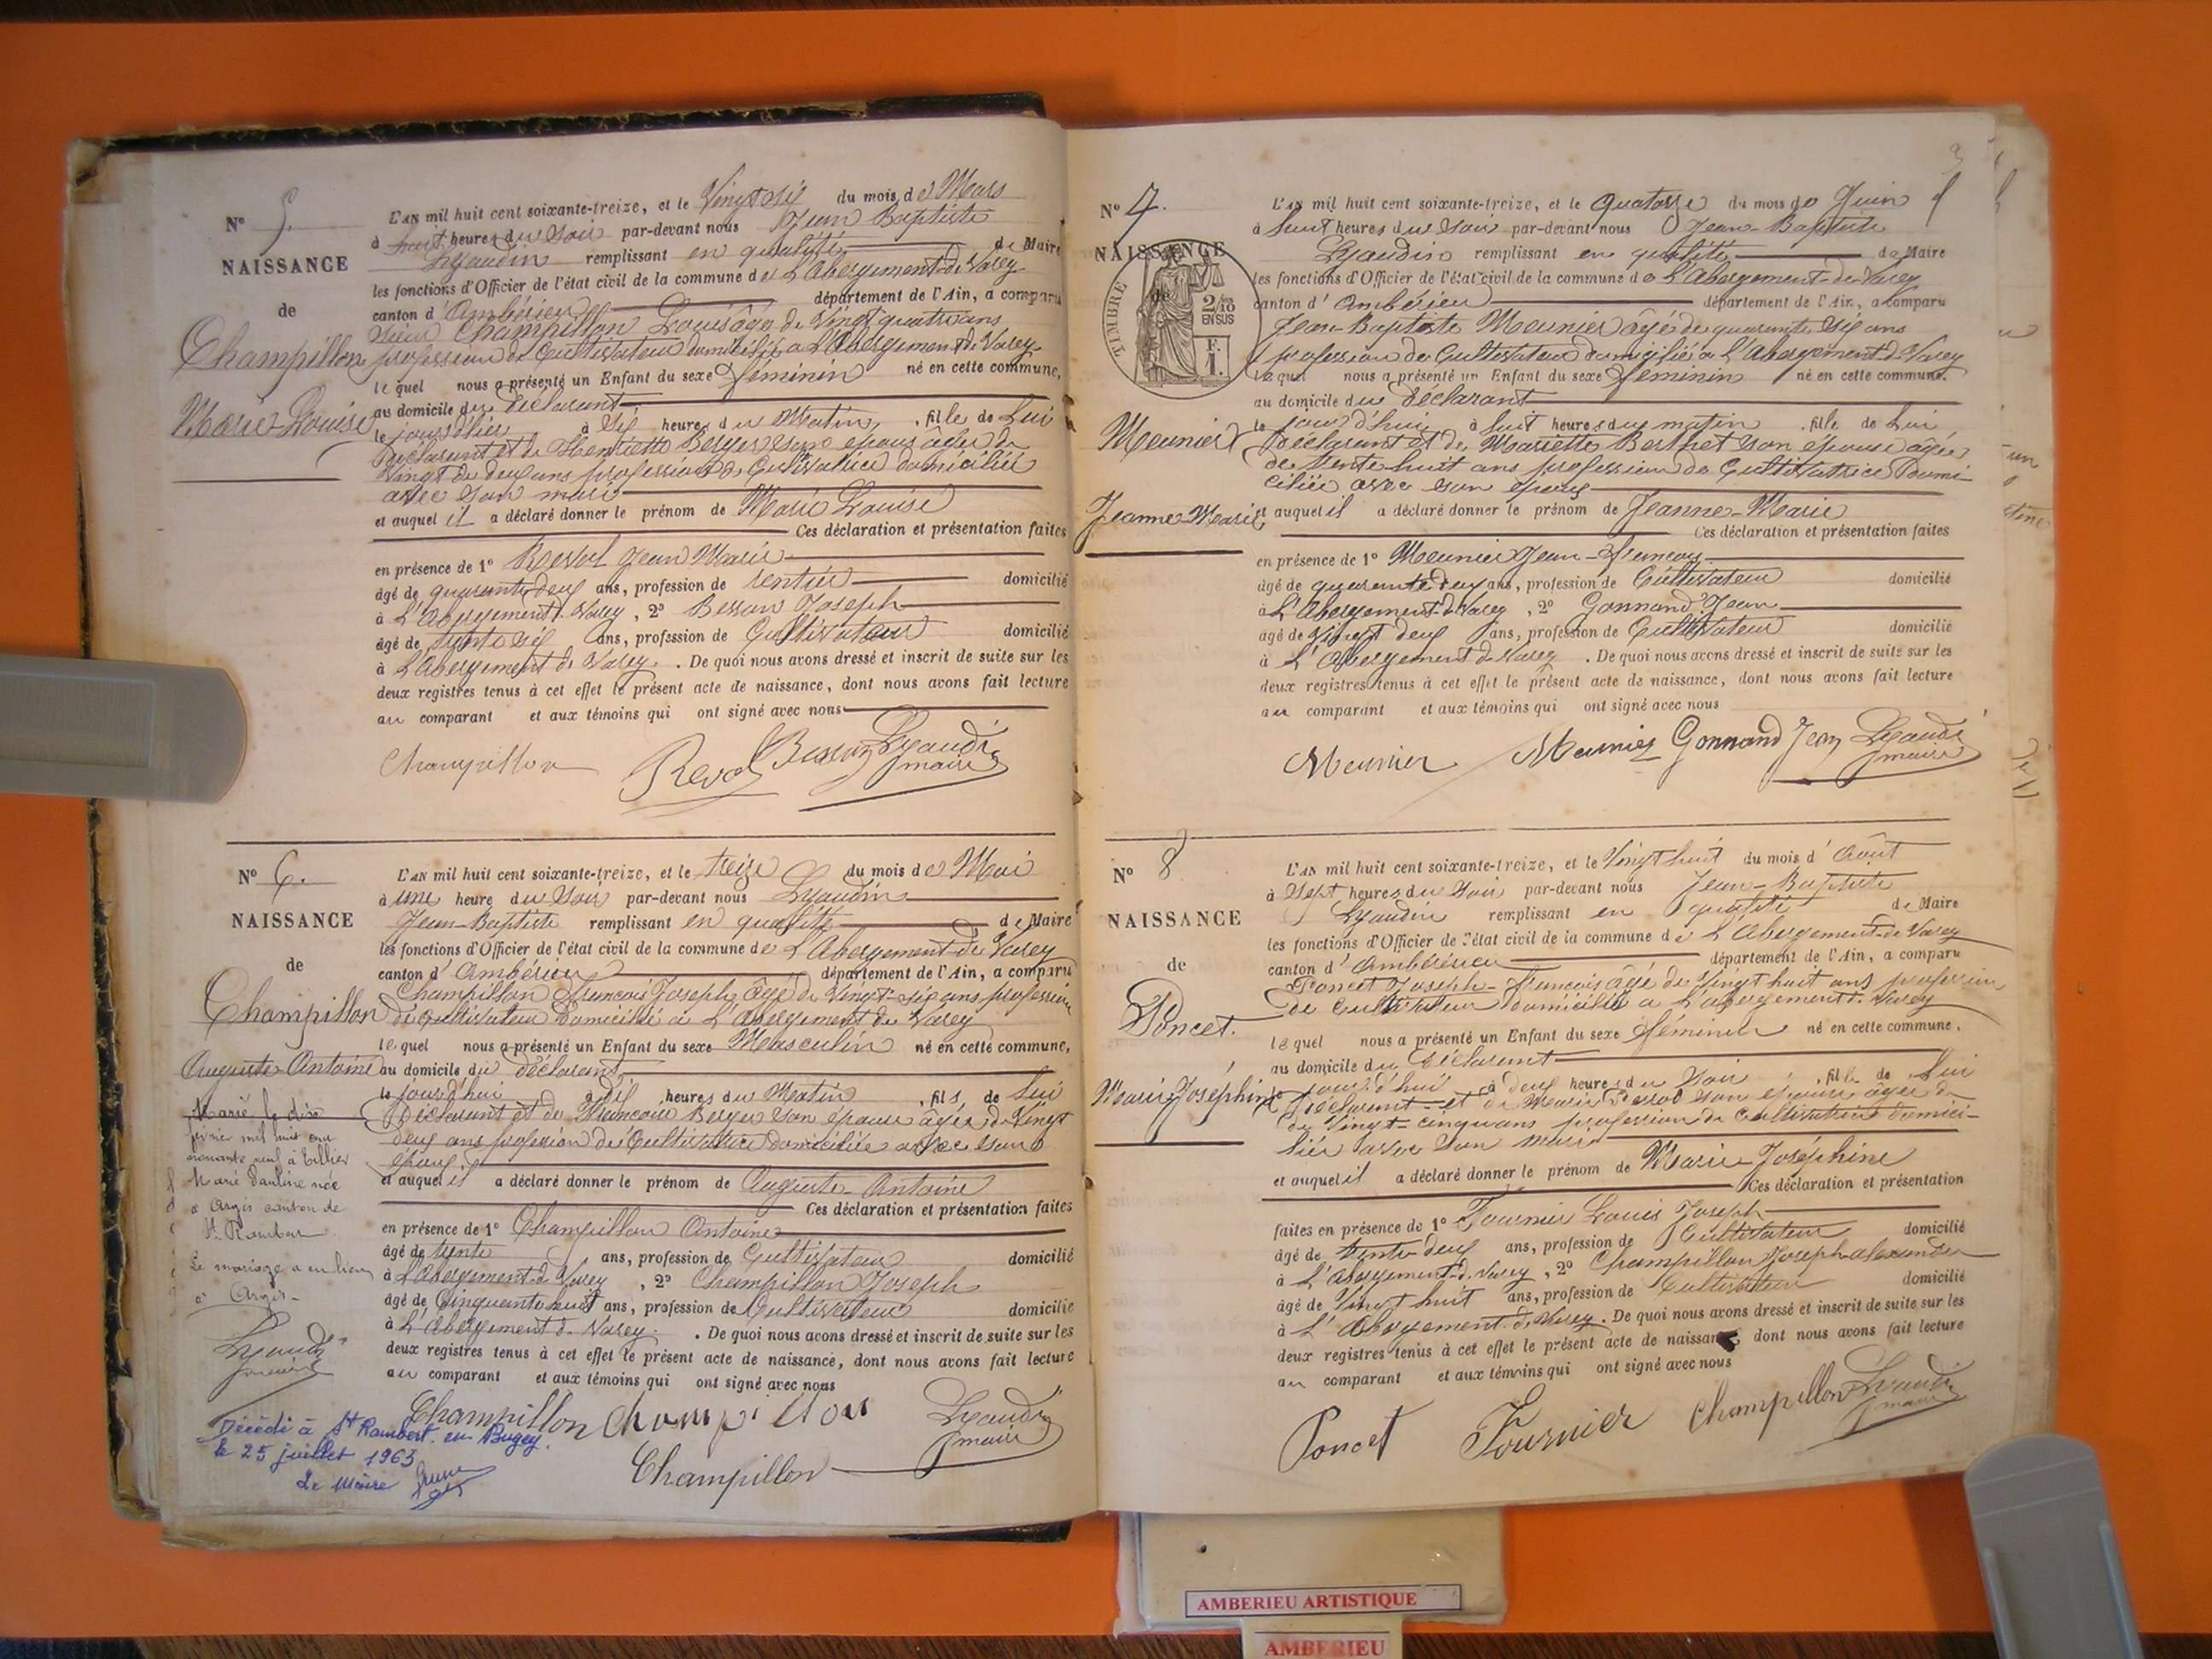 N° 5.
NAISSANCE
de
Champillon
Marie-Louise
L'AN mil huit cent soixante-treize, et le Vingt six du mois de Mars
à huit heures du Soir par-devant nous Jean Baptiste
Lyaudin remplissant en qualité de Maire
les fonctions d'Officier de l'état civil de la commune de L'Abergement-de-Varey
canton d'Ambérieu département de l'Ain, a comparu
Sieur Champillon Louis âgé de Vingt quatre ans
profession de Cultivateur domicilié a L'Abergement de Varey
lequel nous a présenté un Enfant du sexe féminin né en cette commune,
au domicile du déclarant
le jour d'hier à Six heures du Matin, fille de Lui
Déclarant et de Henriette Berger son epouse âgée de
Vingt de deux ans profession de Cultivatrice domiciliée
avec son mari
et auquel il a déclaré donner le prénom de Marie Louise
Ces déclaration et présentation faites
en présence de 1° Revol Jean Marie
âgé de quarante deux ans, profession de rentier domicilié
à L'Abergement de Varey, 2° Besson Joseph
âgé de trente six ans, profession de Cultivateur domicilié
à L'Abergement de Varey. De quoi nous avons dressé et inscrit de suite sur les
deux registres tenus à cet effet le présent acte de naissance, dont nous avons fait lecture
au comparant et aux témoins qui ont signé avec nous
Champillon Revol Besson Lyaudin
maire
N° 6.
NAISSANCE
de
Champillon
Auguste-Antoine
L'AN mil huit cent soixante-treize, et le treize du mois de Mai
à une heure du Soir par-devant nous Lyaudin
Jean-Baptiste remplissant en qualité de Maire
les fonctions d'Officier de l'état civil de la commune de L'Abergement-de-Varey
canton d'Ambérieu département de l'Ain, a comparu
Champillon francois Joseph âgé de Vingt-six ans profession
de cultivateur Domicilié à L'Abergement de Varey
lequel nous a présenté un Enfant du sexe Masculin né en cette commune,
au domicile du déclarant
le jour d'hui à dix heures du Matin, fils de Lui
Déclarant et de Francoise Berger son épouse âgée de Vingt
deux ans profession de Cultivatrice domiciliée avec son
époux
et auquel il a déclaré donner le prénom de Auguste-Antoine
Ces déclaration et présentation faites
en présence de 1° Champillon Antoine
âgé de trente ans, profession de Cultivateur domicilié
à L'Abergement-de Varey, 2° Champillon Joseph
âgé de Cinquante huit ans, profession de Cultivateur domicilié
à L'Abergement de Varey. De quoi nous avons dressé et inscrit de suite sur les
deux registres tenus à cet effet le présent acte de naissance, dont nous avons fait lecture
au comparant et aux témoins qui ont signé avec nous
Champillon Champillon Lyaudin
maire
Champillon
Marié le dix
février mil huit cent
nonante neuf à Tillier
Marie Pauline née
à Argis canton de
St Rambert
Le mariage a eu lieu
à Argis-
Lyaudin
maire
Décédé à St Rambert-en-Bugey.
le 25 juillet 1963
Le Maire
N° 7.
NAISSANCE
de
TIMBRE
2/10
EN SUS
F.
1.
Meunier
Jeanne-Marie
L'AN mil huit cent soixante-treize, et le quatorze du mois de Juin
à huit heures du Soir par-devant nous Jean-Baptiste
Lyaudin remplissant en qualité de Maire
les fonctions d'Officier de l'état civil de la commune de L'Abergement-de-Varey
canton d'Ambérieu département de l'Ain, a comparu
Jean-Baptiste Meunier âgé de quarante six ans
profession de Cultivateur domicilié a L'Abergement-de-Varey
lequel nous a présenté un Enfant du sexe féminin né en cette commune.
au domicile du déclarant
le jour d'hui à huit heures du matin, fille de Lui
Déclarant et de Mariette Berthet son épouse âgée
de trente huit ans profession de Cultivatrice Domi-
ciliée avec son époux
et auquel il a déclaré donner le prénom de Jeanne-Marie
Ces déclaration et présentation faites
en présence de 1° Meunier Jean-francois
âgé de quarante deux ans, profession de Cultivateur domicilié
à L'Abergement-de-Varey, 2° Gonnand Jean
âgé de Vingt deux ans, profession de Cultivateur domicilié
à L'Abergement de Varey. De quoi nous avons dressé et inscrit de suite sur les
deux registres tenus à cet effet le présent acte de naissance, dont nous avons fait lecture
au comparant et aux témoins qui ont signé avec nous
Meunier Meunier Gonnand Jean Lyaudin
maire
N° 8
NAISSANCE
de
Poncet.
Marie-Joséphine
L'AN mil huit cent soixante-treize, et le Vingt huit du mois d'Août
à Sept heures du Soir par-devant nous Jean-Baptiste
Lyaudin remplissant en qualité de Maire
les fonctions d'Officier de l'état civil de la commune de L'Abergement-de Varey
canton d'Ambérieu département de l'Ain, a comparu
Poncet Joseph-francois âgé de Vingt huit ans profession
de Cultivateur domicilié a L'abergement de Varey
lequel nous a présenté un Enfant du sexe féminin né en cette commune.
au domicile du Déclarant
le jour d'hui à deux heures du Soir, fille de Lui
Déclarant et de Marie Revol son épouse âgée de
de Vingt-cinq ans profession de Cultivatrice domici-
liée avec son mari
et auquel il a déclaré donner le prénom de Marie-Joséphine
Ces déclaration et présentation
faites en présence de 1° Fournier Louis Joseph
âgé de trente deux ans, profession de Cultivateur domicilié
à L'Abergement-de-Varey, 2° Champillon Joseph alexandre
âgé de Vingt huit ans, profession de Cultivateur domicilié
à L'Abergement de Varey. De quoi nous avons dressé et inscrit de suite sur les
deux registres tenus à cet effet le présent acte de naissance dont nous avons fait lecture
au comparant et aux témoins qui ont signé avec nous
Poncet Fournier Champillon Lyaudin
maire
AMBERIEU ARTISTIQUE
AMBERIEU